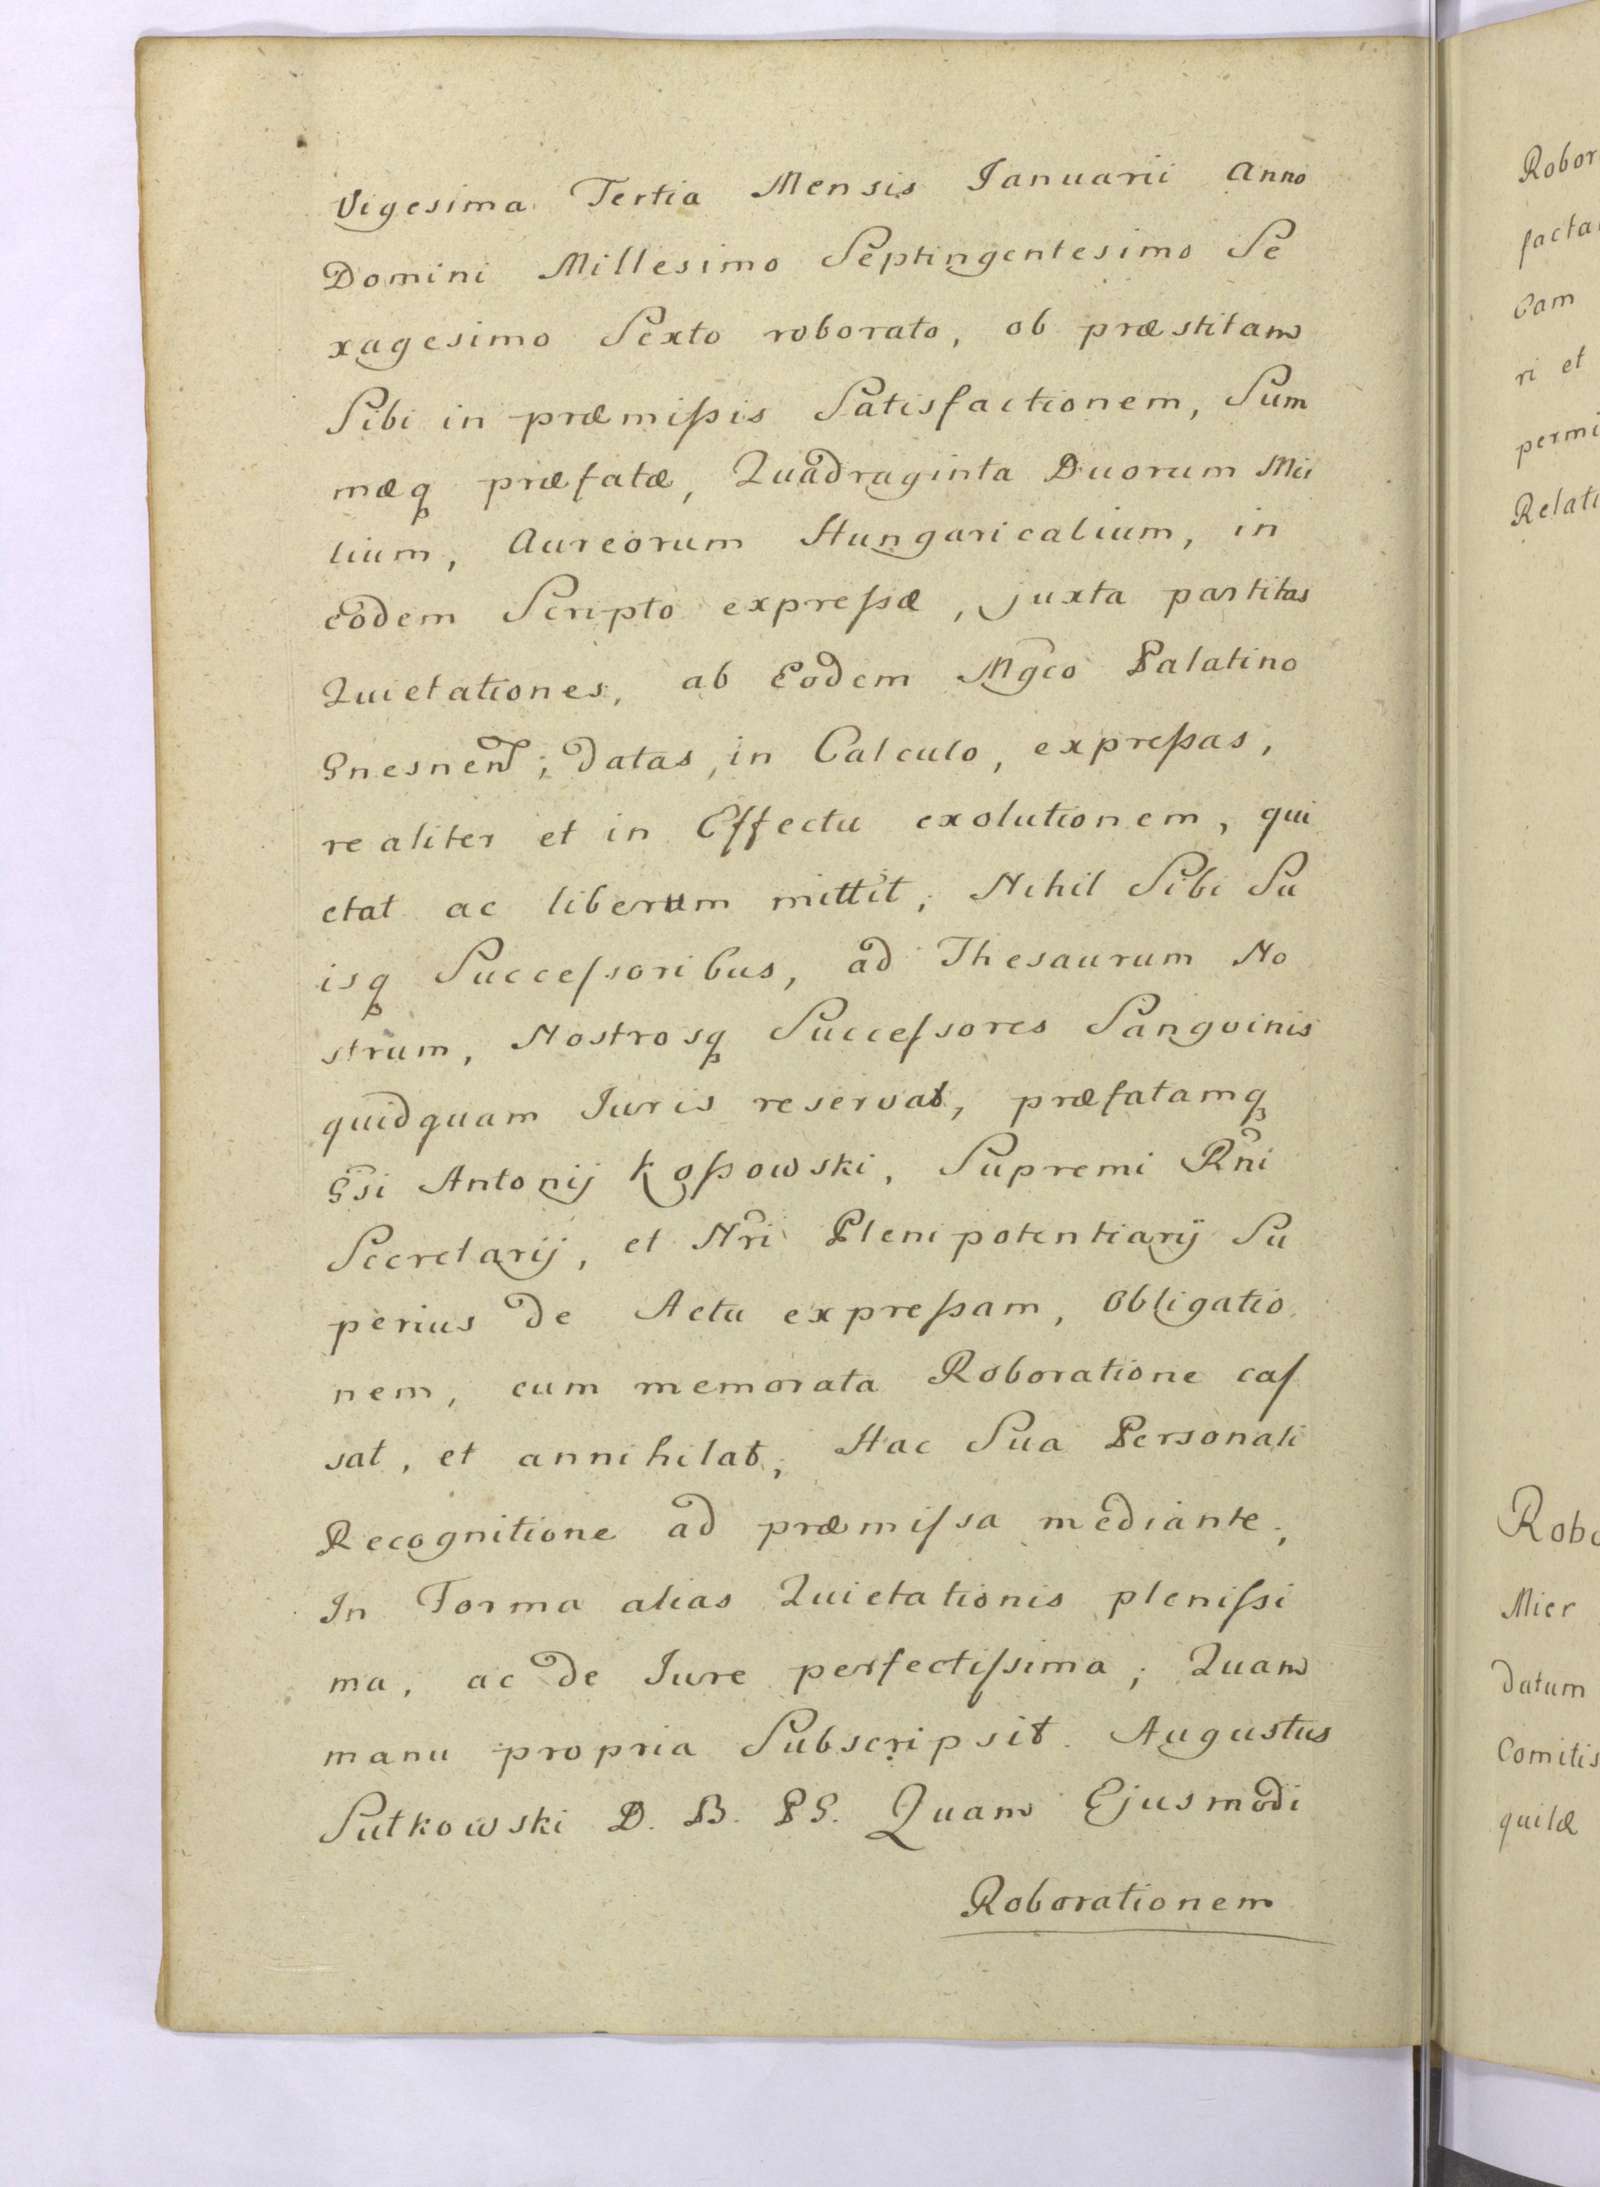 Vigesima Tertia Mensis Ianuarii Anno
Domini Millesimo Septingentesimo Se
xagesimo Sexto roborato, ob præstitam
Sibi in præmißis Satisfactionem, Sum
mæq præfatæ, Quadraginta Duorum Mil
lium, Aureorum Hungaricalium, in
eodem Scripto expreßæ, juxta partitas
Quietationes, ab Eodem Mgco Palatino
Gnesnen; datas, in Calculo, expreßas,
realiter et in Effectu exolutionem, qui
etat ac liberum mittit; Nihil Sibi Su
isq Succeſsoribus, ad Thesaurum No
strum, Nostrosq Succeſsores Sangvinis
quidquam Iuris reservat, præfatamq
Gsi Antonij Koßowski, Supremi Rni
Secretarij, et Nri Plenipotentiarij Su
perius de Actu expreßam, Obligatio
nem, cum memorata Roboratione caſ
sat, et annihilat; Hac Sua Personali
Recognitione ad præmiſsa mediante;
In Forma alias Quietationis pleniſsi
ma, ac de Iure perfectiſsima; Quam
manu propria Subscripsit. Augustus
Sułkowski D. B. PG. Quam Ejusmodi
Roborationem
Robor
factam
Eam
ri et
permi
Relati
Robo
Mier
datum
Comitis
quilæ